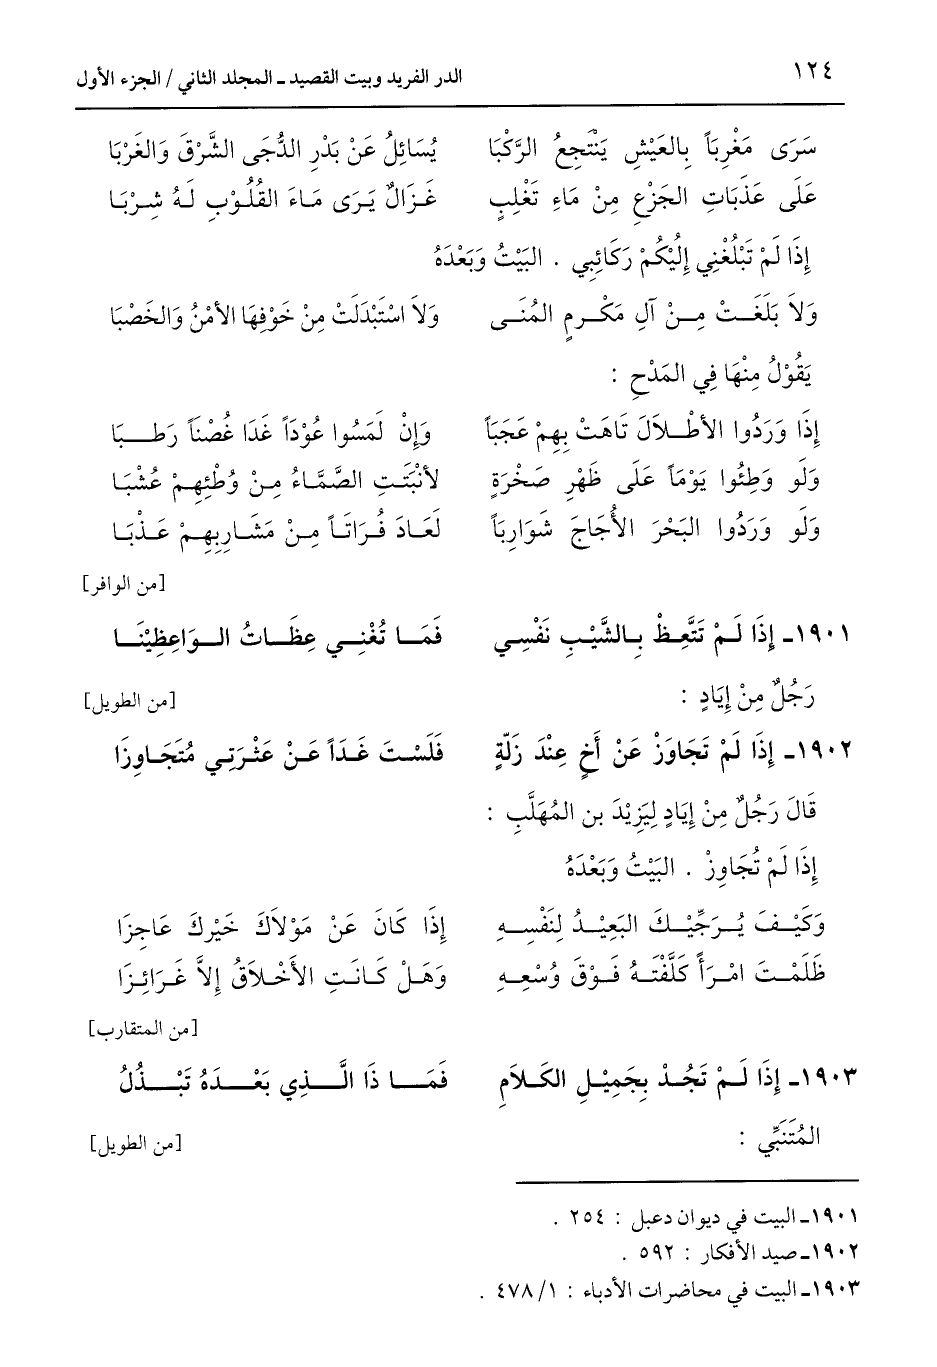 ١٢٤ الدر الفريد وبيت القصيد ـ المجلد الثاني / الجزء الأول
سَرَى مَغْرِباً بِالعَيْسِ يَنْتَجِعُ الرَّكْبَا يُسَائِلُ عَنْ بَدْرِ الدُّجَى الشَّرْقَ وَالغَرْبَا
عَلَى عَذَبَاتِ الجَزْعِ مِنْ مَاءِ تَغْلِبٍ غَزَالٌ يَرَى مَاءَ القُلُوْبِ لَهُ شِرْبَا
إِذَا لَمْ تَبْلُغْنِي إِلَيْكُمْ رَكَائِبِي . البَيْتُ وَبَعْدَهُ
وَلاَ بَلَغَتْ مِنْ آلِ مَكْرِمٍ المُنَى وَلاَ اسْتَبْدَلَتْ مِنْ خَوْفِهَا الأَمْنُ وَالخَصْبَا
يَقُوْلُ مِنْهَا فِي المَدْحِ :
إِذَا وَرَدُوا الأَطْلاَلَ تَاهَتْ بِهِمْ عَجَبَاً وَإِنْ لَمَسُوا عُوْدَاً غَدَا غُصْنَاً رَطِبَا
وَلَو وَطِئُوا يَوْمَاً عَلَى ظَهْرِ صَخْرَةٍ لأَنْبَتَتِ الصَّمَّاءُ مِنْ وُطْئِهِمْ عُشْبَا
وَلَو وَرَدُوا البَحْرَ الأُجَاجَ شَوَارِبَاً لَعَادَ فُرَاتَاً مِنْ مَشَارِبِهِمْ عَذْبَا
[من الوافر]
١٩٠١ـ إِذَا لَمْ تَتَّعِظْ بِالشَّيْبِ نَفْسِي فَمَا تُغْنِي عِظَاتُ الوَاعِظِيْنَا
رَجُلٌ مِنْ إِيَادٍ : [من الطويل]
١٩٠٢ـ إِذَا لَمْ تَجَاوَزْ عَنْ أَخٍ عِنْدَ زَلَّةٍ فَلَسْتَ غَدَاً عَنْ عَثْرَتِي مُتَجَاوِزَا
قَالَ رَجُلٌ مِنْ إِيَادٍ لِيَزِيْدَ بن المُهَلَّبِ :
إِذَا لَمْ تُجَاوِزْ . البَيْتُ وَبَعْدَهُ
وَكَيْفَ يُرَجِّيْكَ البَعِيْدُ لِنَفْسِهِ إِذَا كَانَ عَنْ مَوْلاَكَ خَيْرِكَ عَاجِزَا
ظَلَمْتَ امْرَأً كَلَّفْتَهُ فَوْقَ وُسْعِهِ وَهَلْ كَانَتِ الأَخْلاَقُ إِلاَّ غَرَائِزَا
[من المتقارب]
١٩٠٣ـ إِذَا لَمْ تَجُدْ بِجَمِيْلِ الكَلاَمِ فَمَا ذَا الَّذِي بَعْدَهُ تَبْذُلُ
المُتَنَبِّي : [من الطويل]
١٩٠١ـ البيت في ديوان دعبل : ٢٥٤ .
١٩٠٢ـ صيد الأفكار : ٥٩٢ .
١٩٠٣ـ البيت في محاضرات الأدباء : ١/ ٤٧٨ .